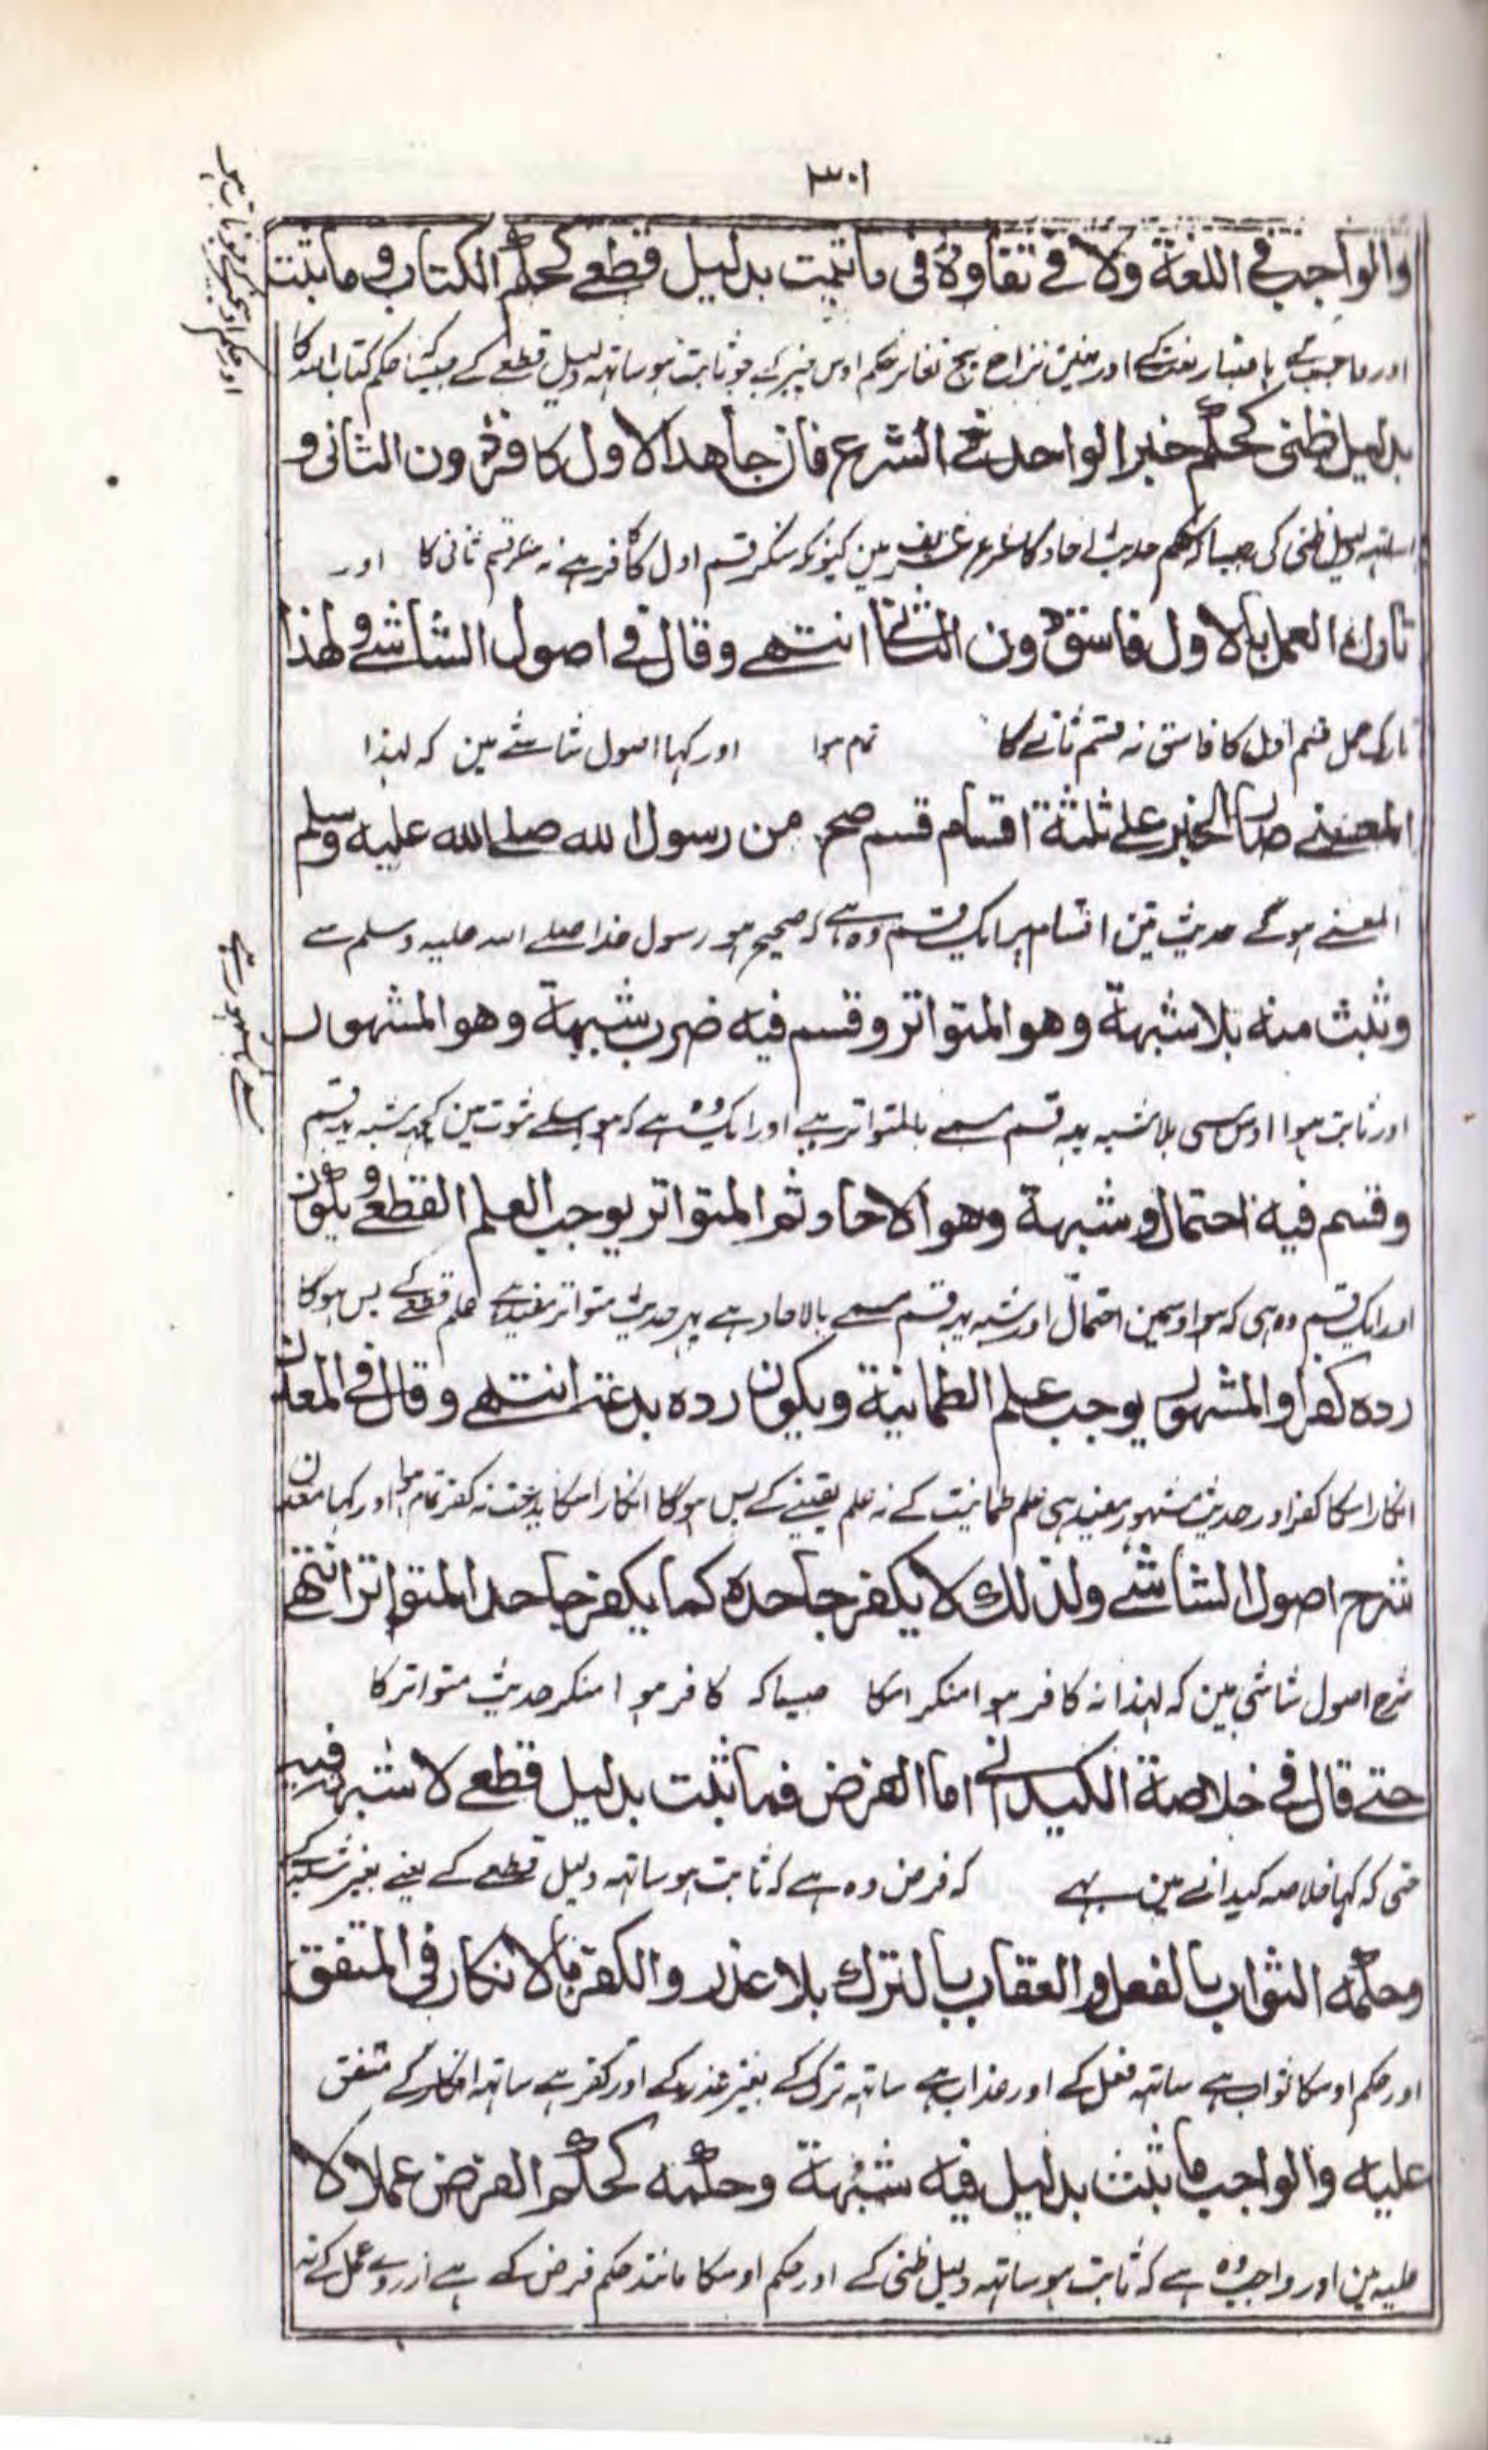 ٣٠١
والواجب في اللغة ولا في تفاوت في ما ثبت بدليل قطعے كحكم الكتاب وما ثبت
اور واجب کے باعتبار لغت کے اور نہین نزاع بیچ تغائر حکم اوس چیز کے جو ثابت ہو ساتهہ دلیل قطعے کے جیسے کہ حکم کتاب اللہ کا
بدليل ظنى كحكم خبر الواحد في الشرع فان جاهد الاول كافر دون الثانى و
ساتهہ دلیل ظنی کی جیسا کہ حکم حدیث احاد کا شرع شریف مین کیونکہ منکر قسم اول کا کافر ہے نہ منکر قسم ثانی کا اور
تارك العمل بالاول فاسق دون الثانى انتهے وقال فے اصول الشاشے ولهذا
تارک عمل قسم اول کا فاسق نہ قسم ثانے کا تمام ہوا اور کہا اصول شاشے مین کہ لہذا
المعنے صار الخبر علے ثلثة اقسام قسم صح من رسول الله صلے الله عليه وسلم
المعنے ہوگے حدیث تین اقسام پر ایک قسم وہ ہے کہ صحیح ہو رسول خدا صلے اللہ علیہ وسلم سے
وثبت منه بلا شبهة وهو المتواتر وقسم فيه ضرب شبهة وهو المشهور
اور ثابت ہوا اوس سی بلا شبہ یہہ قسم مسمے بالمتواتر ہے اور ایک وہ ہے کہ ہو اسکے ثبوت مین کچہہ شبہ یہہ قسم
وقسم فيه احتمال وشبهة وهو الاحاد ثم المتواتر يوجب العلم القطعے ويكون
اور ایک قسم وہ ہی کہ ہو اوسمین احتمال اور شبہ یہہ قسم مسمے بالاحاد ہے پہر حدیث متواتر مفید ہے علم قطعے کے پس ہوگا
رده كفرا والمشهور يوجب علم الطمانية ويكون رده بدعة انتهے وقال في المعدن
انکار اسکا کفر اور حدیث مشہور مفید ہی علم طمانیت کے نہ علم یقینے کے پس ہوگا انکار اسکا بدعت نہ کفر تمام ہوا اور کہا معدن
شرح اصول الشاشے ولذلك لا يكفر جاحده كما يكفر جاحد المتواتر انتهے
شرح اصول شاشی مین کہ لہذا نہ کافر ہوا منکر اسکا جیسا کہ کافر ہوا منکر حدیث متواتر کا
حتے قال في خلاصة الكيدانے اما الفرض فما ثبت بدليل قطعے لا شبهة فيه
حتی کہ کہا خلاصہ کیدانے مین بہے کہ فرض وہ ہے کہ ثابت ہو ساتهہ دلیل قطعے کے یعنے بغیر شبہ کے
وحكمه الثواب بالفعل والعقاب بالترك بلا عذر والكفر بالانكار في المتفق
اور حکم اوسکا ثواب ہے ساتهہ فعل کے اور عذاب ہے ساتهہ ترک کے بغیر عذر کے اور کفر ہے ساتهہ انکار کے متفق
عليه والواجب ما ثبت بدليل فيه شبهة وحكمه كحكم الفرض عملا لا
علیہ مین اور واجب وہ ہے کہ ثابت ہو ساتهہ دلیل ظنی کے اور حکم اوسکا مانند حکم فرض کے ہے ازروے عمل کے نہ